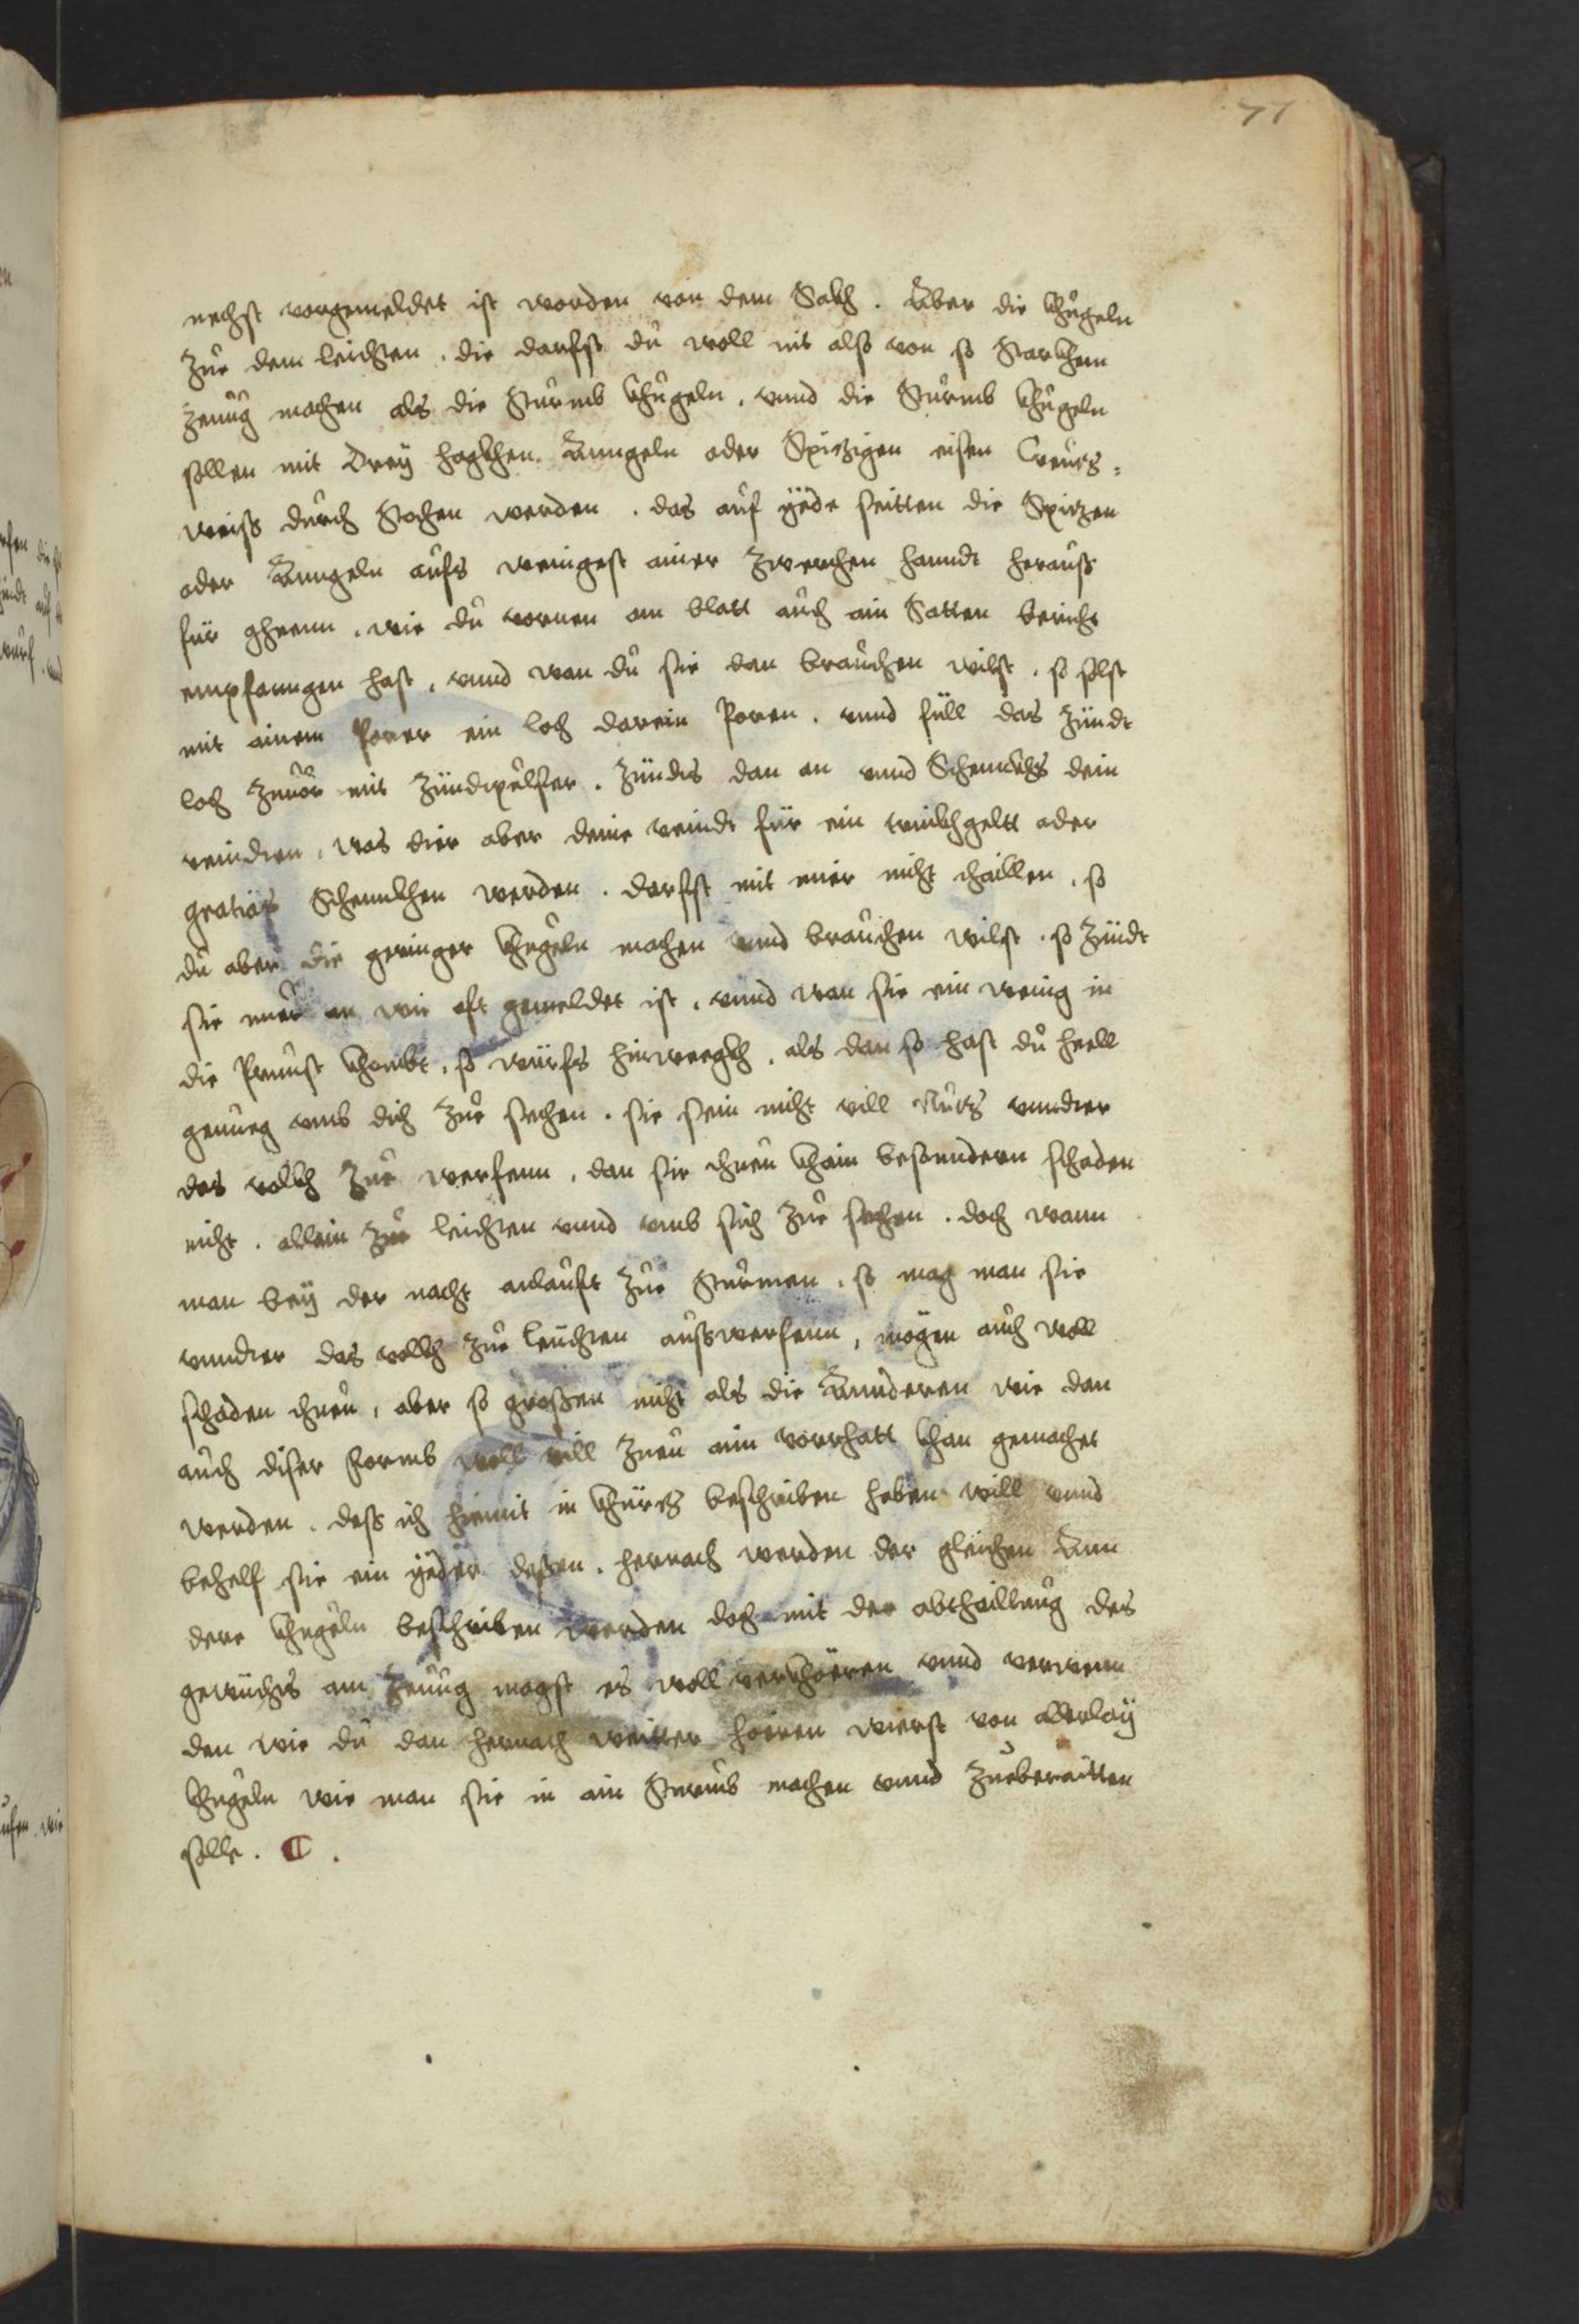 77
nechst vorgemeldet ist worden von dem Sakh. Aber die Khugeln
Zue dem leichten. die darfst du woll nit also von so Starkhem
zeuug machen als die Sturmb khugeln, vnnd die Sturmb khugeln
sollen mit Drey hagkhen Anngeln oder Spitzigen eisen Creuts=
weiss durch Stochen werden. das auf yede seitten die Spitzen
oder Anngeln aufs wenigest ainer Zwerchen hanndt herauss
für gheenn, wie du vornen am blatt auch ain Satten bericht
empfanngen hast, vnnd wan du sie dan brauchen wilst. so solst
mit ainem Porer ein loch darein Poren. vnnd füll das Zündt
loch zuuor mit Zündtpulfer. Zündts dan an vnnd Schennkhs dein
veindten, was dier aber deine veindt für ein trinkhgeltt oder
gratias Schennkhen werden. darfst mit mier nicht thaillen, so
du aber die geringer khugeln machen vnnd brauchen wilst. so Zündt
sie nuer an wie oft gemeldet ist, vnnd wan sie ein wenig in
die Prunst khombt, so würfs hinwegkh, als dan so hast du heell
genueg vmb dich Zue sechen. sie sein nicht vill Nuts vnndter
das volkh Zue werfenn, dan sie thuen khain besonndern schaden
nicht. allein Zue leichten vnnd vmb sich Zue sechen. doch wann
man bey der nacht anlauft Zue Sturmen, so mag man sie
vnndter das vollkh Zue leuchten aussWerfenn, mögen auch woll
schaden thuen, aber so grossen nicht als die Annderen wie dan
auch diser Formb woll vill Zuen ain vorrhatt khan gemachet
werden. dess ich hiemit in khürtz beschriben haben will vnnd
behelf sie ein yeder dessen. hernach werden der gleichen Ann
dere khugeln beschriben werden doch mit der abthaillung des
gewichts am Zeuug magst es woll verkhoeren vnnd verwenn
den wie du dan hernach weitter hoeren wierst von allerlay
khugeln wie man sie in ain Sturmb machen vnnd Zueberaitten
solle.